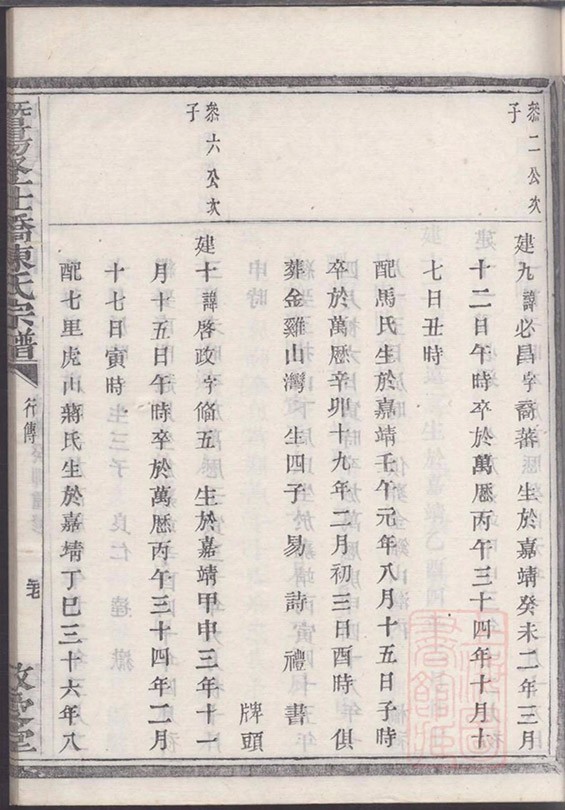 叅二公次
子
建九諱必昌字裔蕃 生於嘉靖癸未二年三月
十二日午時卒於萬厯丙午三十四年十月十
七日丑時
配馬氏生於嘉靖壬午元年八月十五日子時
卒於萬厯辛卯十九年二月初三日酉時 俱
葬金雞山灣 生四子 易 詩 禮 書
牌頭
叅六公次
子
建十諱啓政字脩五 生於嘉靖甲申三年十一
月十五日午時卒於萬厯丙午三十四年二月
十七日寅時
配七里虎山蔣氏生於嘉靖丁巳三十六年八
橋陳氏宗譜
行傳